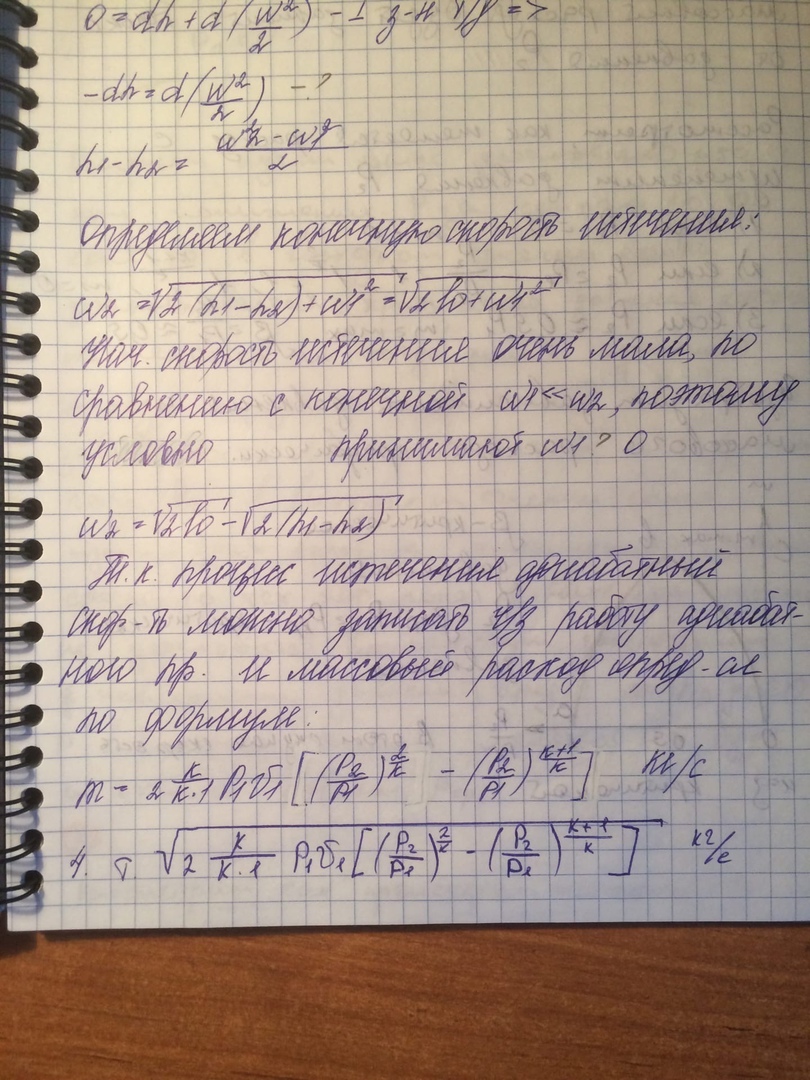 0 = dh + d (w²/2) - I з-н т/д =>
-dh = d (w²/2) - ?
h1 - h2 = (w²2 - w1²)/2
Определяем конечную скорость истечения:
w2 = √2(h1-h2)+w1² = √2l0+w1²
Нач. скорость истечения очень мала, по
сравнению с конечной w1<<w2, поэтому
условно принимают w1 ? 0
w2 = √2l0 - √2(h1-h2)
Т.к. процесс истечения адиабатный
скор-ть можно записать ч/з работу адиабат-
ного пр. и массовый расход опред-ся
по формуле:
m = 2 K/K·1 P1υ1 [(P2/P1)^2/K - (P2/P1)^K+1/K] кг/с
4. т. √2 K/K·1 P1υ1 [(P2/P1)^2/K - (P2/P1)^K+1/K] кг/с